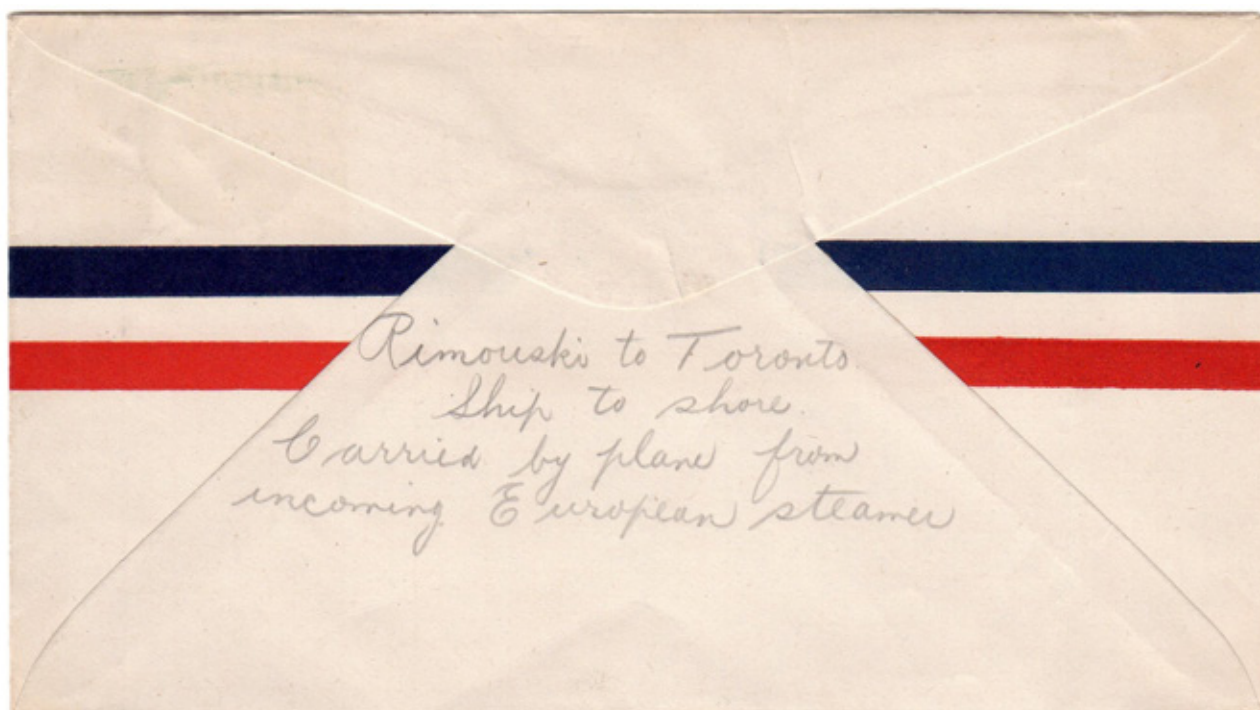 Rimouski to Toronto
Ship to shore.
Carried by plane from
incoming European steamer